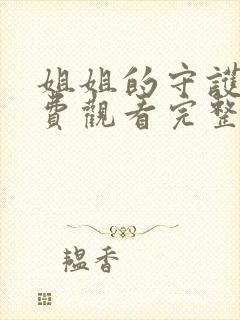 姐姐的守護
費觀看完整
韞香